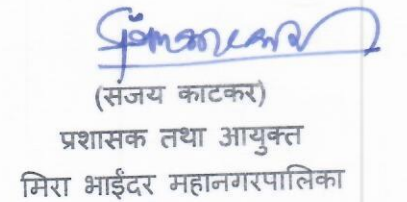 (संजय काटकर)
प्रशासक तथा आयुक्त
मिरा भाईंदर महानगरपालिका